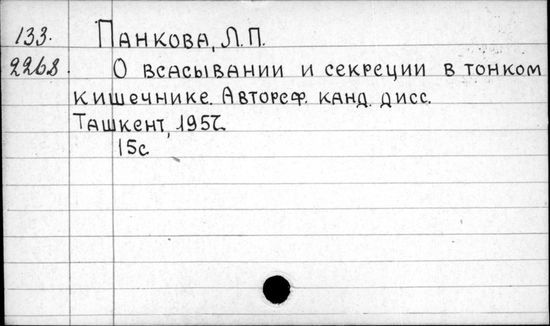 133. Панкова, Л.П.
2268. О всасывании и секреции в тонком
кишечнике. Автореф. канд. дисс.
Ташкент, 1957.
15с